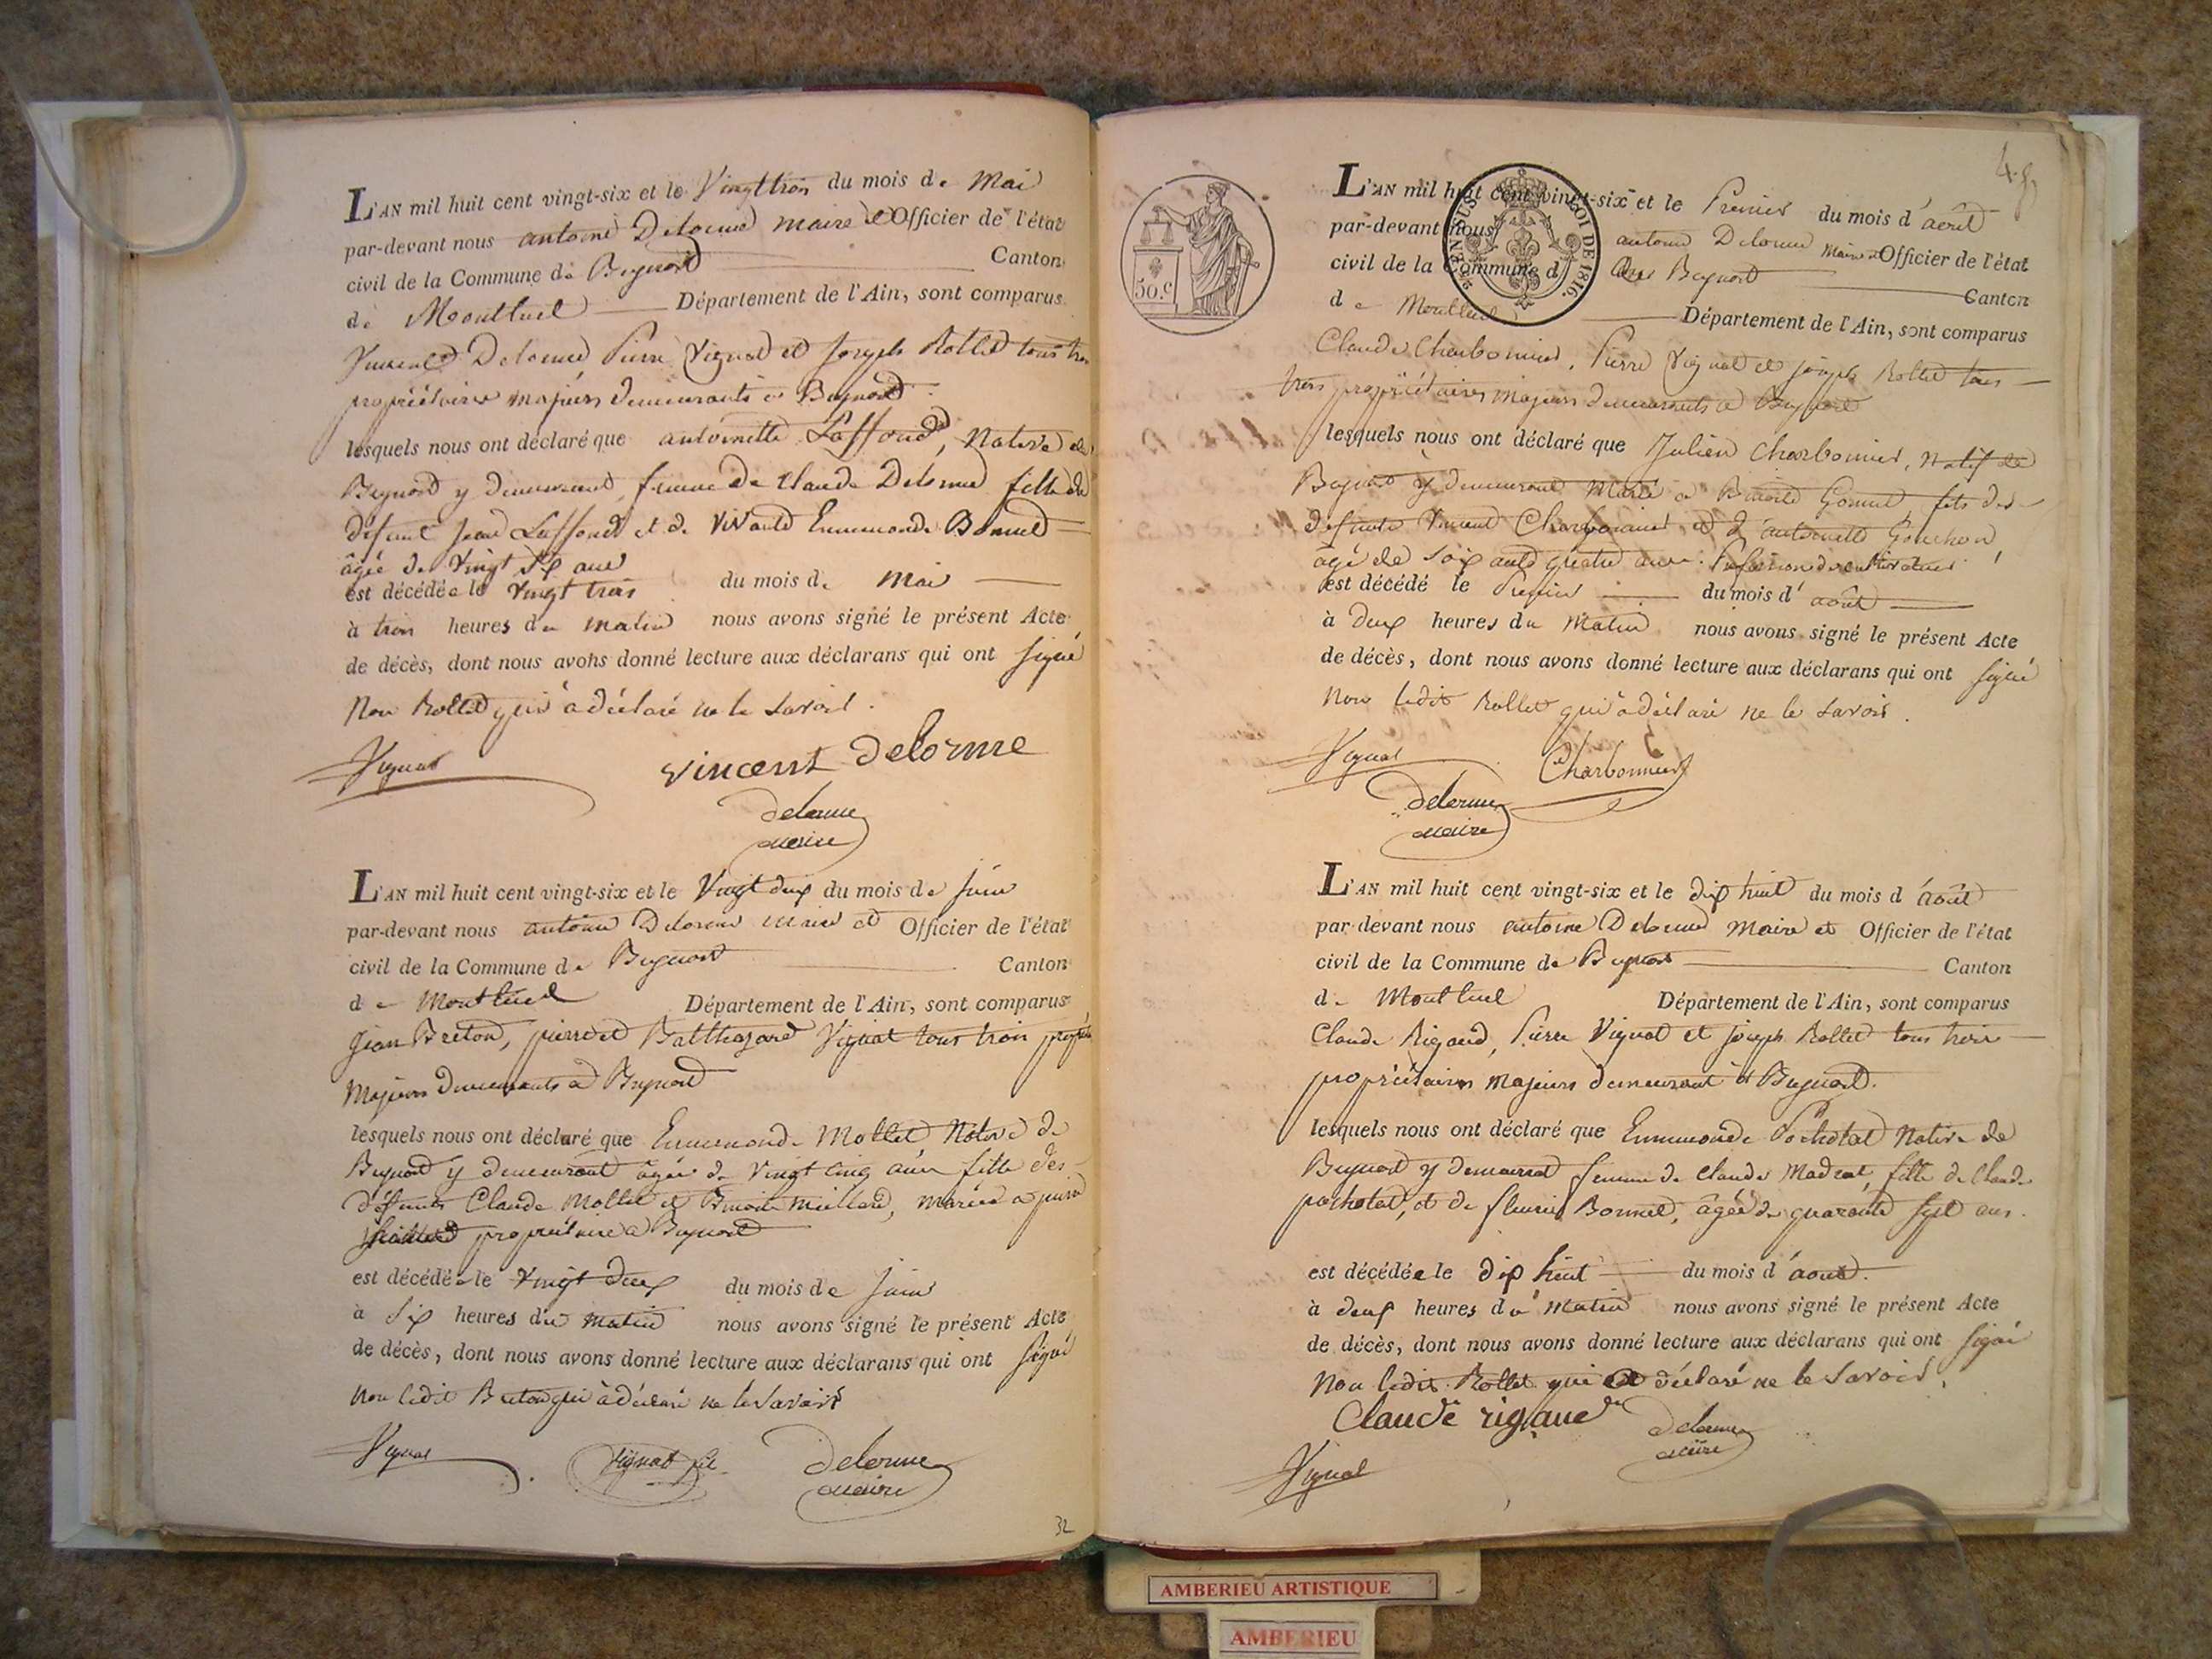 L'AN mil huit cent vingt-six et le Vingt trois du mois de Mai
par-devant nous antoine Delorme maire et Officier de l'état
civil de la Commune de Beynost Canton
de Montluel Département de l'Ain, sont comparus
Vincent Delorme Pierre Vignat et Joseph Rollet tous trois
propriétaires majeurs demeurants à Beynost
lesquels nous ont déclaré que antoinette Laffond, Native de
Beynost y demeurant, femme de Claude Delorme fille de
défunt Jean Laffond et de vivante Ennemonde Bonnet
âgée de Vingt six ans
est décédée le vingt trois du mois de Mai
à trois heures du matin nous avons signé le présent Acte
de décès, dont nous avons donné lecture aux déclarans qui ont signé
Non Rollet qui a déclaré ne le savoir.
Vignat vincent Delorme
Delorme
maire
L'AN mil huit cent vingt-six et le Vingt deux du mois de Juin
par-devant nous antoine Delorme maire et Officier de l'état
civil de la Commune de Beynost Canton
de Montluel Département de l'Ain, sont comparus
Jean Breton, pierre et Balthazard Vignat tous trois
Majeurs demeurants à Beynost
lesquels nous ont déclaré que Ennemonde Mollet Native de
Beynost y demeurant âgée de vingt cinq ans fille des
défunts Claude Mollet et Benoite Millard, mariée a
propriétaire a Beynost
est décédée le vingt deux du mois de Juin
à six heures du matin nous avons signé le présent Acte
de décès, dont nous avons donné lecture aux déclarans qui ont signé
non ledit Breton qui a déclaré ne le savoir
Vignat Vignat fils Delorme
maire
32
L'AN mil huit cent vingt-six et le Premier du mois d'août
par-devant nous antoine Delorme Maire et Officier de l'état
civil de la Commune de Beynost Canton
de Montluel Département de l'Ain, sont comparus
LOI DE 1816.
50.c
Claude Charbonnier, Pierre Vignat et joseph Rollet tous
trois propriétaires majeurs demeurants à Beynost
lesquels nous ont déclaré que Julien Charbonnier, Natif de
Beynost y demeurant Marié a Benoite Gonnet, fils des
défunts Vincent Charbonnier et d'antoinette Gonchon,
âgé de soixante quatre ans.
est décédé le Premier du mois d'août
à deux heures du Matin nous avons signé le présent Acte
de décès, dont nous avons donné lecture aux déclarans qui ont signé
Non ledit Rollet qui a déclaré ne le savoir.
Vignat Charbonnier
Delorme
maire
L'AN mil huit cent vingt-six et le dix huit du mois d'août
par-devant nous antoine Delorme Maire et Officier de l'état
civil de la Commune de Beynost Canton
de Montluel Département de l'Ain, sont comparus
Claude Rigaud, Pierre Vignat et joseph Rollet tous trois
propriétaires majeurs demeurant à Beynost.
lesquels nous ont déclaré que Ennemonde Pochotat Native de
Beynost y demeurant femme de Claude Madrat, fille de Claude
pochotat, et de fleurie Bonnet, âgée de quarante sept ans.
est décédée le dix huit du mois d'août.
à deux heures du Matin nous avons signé le présent Acte
de décès, dont nous avons donné lecture aux déclarans qui ont signé
Non ledit Rollet qui a déclaré ne le savoir.
Claude rigaud Delorme
maire
Vignat
AMBERIEU ARTISTIQUE
AMBERIEU